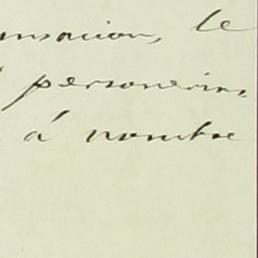 nsacion, le
personerin-
á nombre